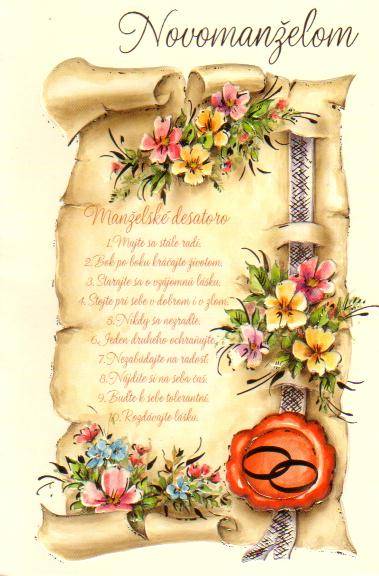 Novomanželom
Manželské desatoro
1. Majte sa stále radi.
2. Bok po boku kráčajte životom.
3. Starajte sa o vzájomnú lásku.
4. Stojte pri sebe v dobrom i v zlom.
5. Nikdy sa nezraďte.
6. Jeden druhého ochraňujte.
7. Nezabúdajte na radosť.
8. Nájdite si na seba čas.
9. Buďte k sebe tolerantní.
10. Rozdávajte lásku.